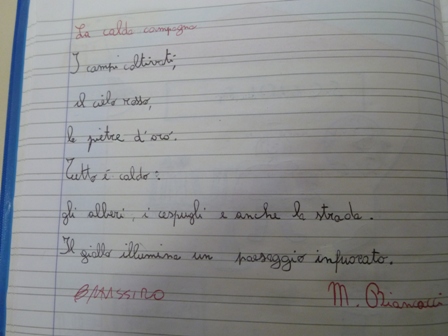 La calda campagna
I campi coltivati,
il cielo rosso,
le pietre d'oro.
Tutto é caldo:
gli alberi, i cespugli e anche la strada.
Il giallo illumina un paesaggio infuocato.
M.